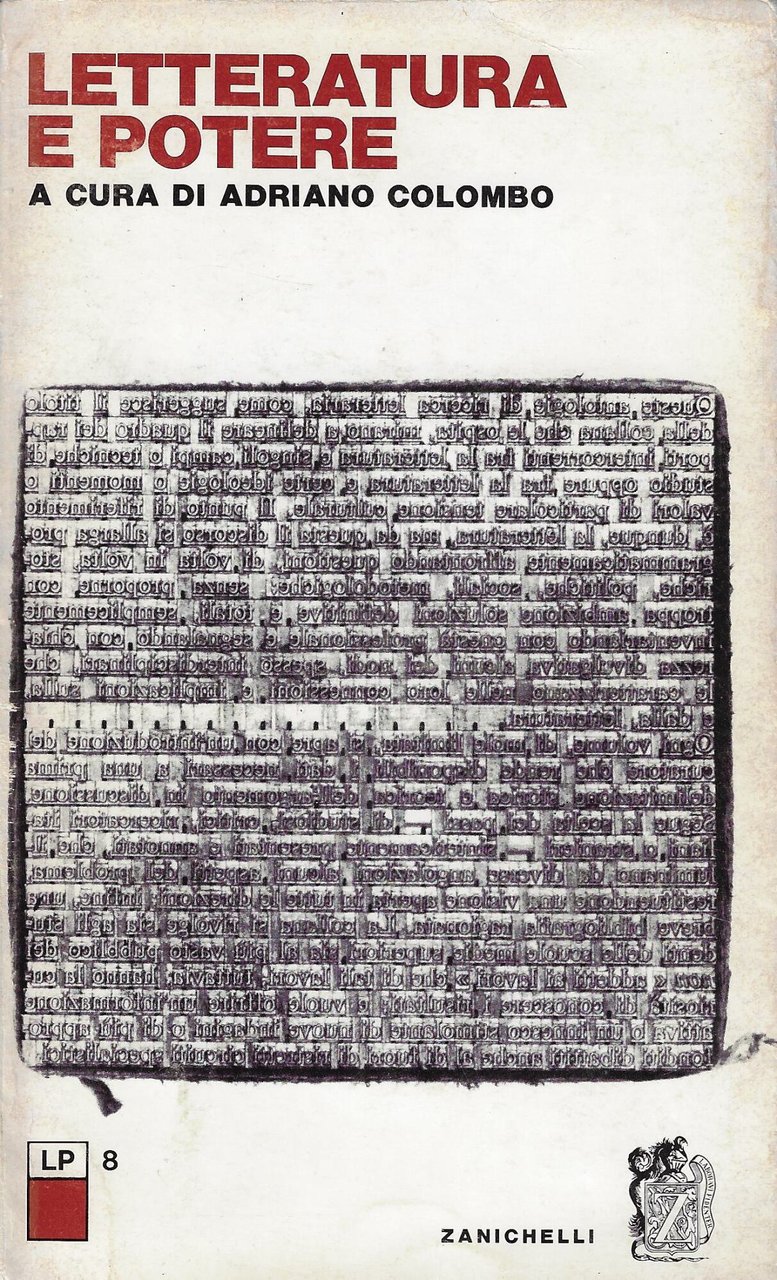 LETTERATURA
E POTERE
A CURA DI ADRIANO COLOMBO
Queste antologie di ricerca letteraria, come suggerisce il titolo
della collana che le ospita, mirano a delineare il quadro dei rap
porti intercorrenti fra la letteratura e singoli campi o tecniche di
studio oppure fra la letteratura e certe ideologie o momenti o
valori di particolare tensione culturale. Il punto di riferimento
è, dunque, la letteratura, ma da questa il discorso si allarga pro
grammaticamente affrontando questioni, di volta in volta, sto
riche, politiche, sociali, metodologiche: senza proporne con
troppa ambizione soluzioni definitive e totali, semplicemente
inventariando con onestà professionale e segnalando con chia
rezza divulgativa alcuni dei nodi, spesso interdisciplinari, che
le caratterizzano nelle loro connessioni e implicazioni sulla,
e dalla, letteratura.
Ogni volume, di mole limitata, si apre con un'introduzione de
curatore che rende disponibili i dati necessari a una prima
delimitazione storica e teorica dell'argomento in discussione.
Segue la scelta dei passi di studiosi, critici, ricercatori ita
liani o stranieri sinteticamente presentati e annotati, che il
luminano da diverse angolazioni alcuni aspetti del problema
restituendone una visione aperta in tutte le direzioni; infine, una
breve bibliografia ragionata. La collana si rivolge sia agli stu
denti delle scuole medie superiori sia al più vasto pubblico de
non « addetti ai lavori » che di tali lavori, tuttavia, hanno la cu
riosità di conoscere i risultati: e vuole offrire un'informazione
attiva o un innesco stimolante di nuove indagini o di più appro
fonditi dibattiti anche al di fuori di ristretti circuiti specialistici
LP 8
ZANICHELLI
LABORAVI FIDENTER
Z